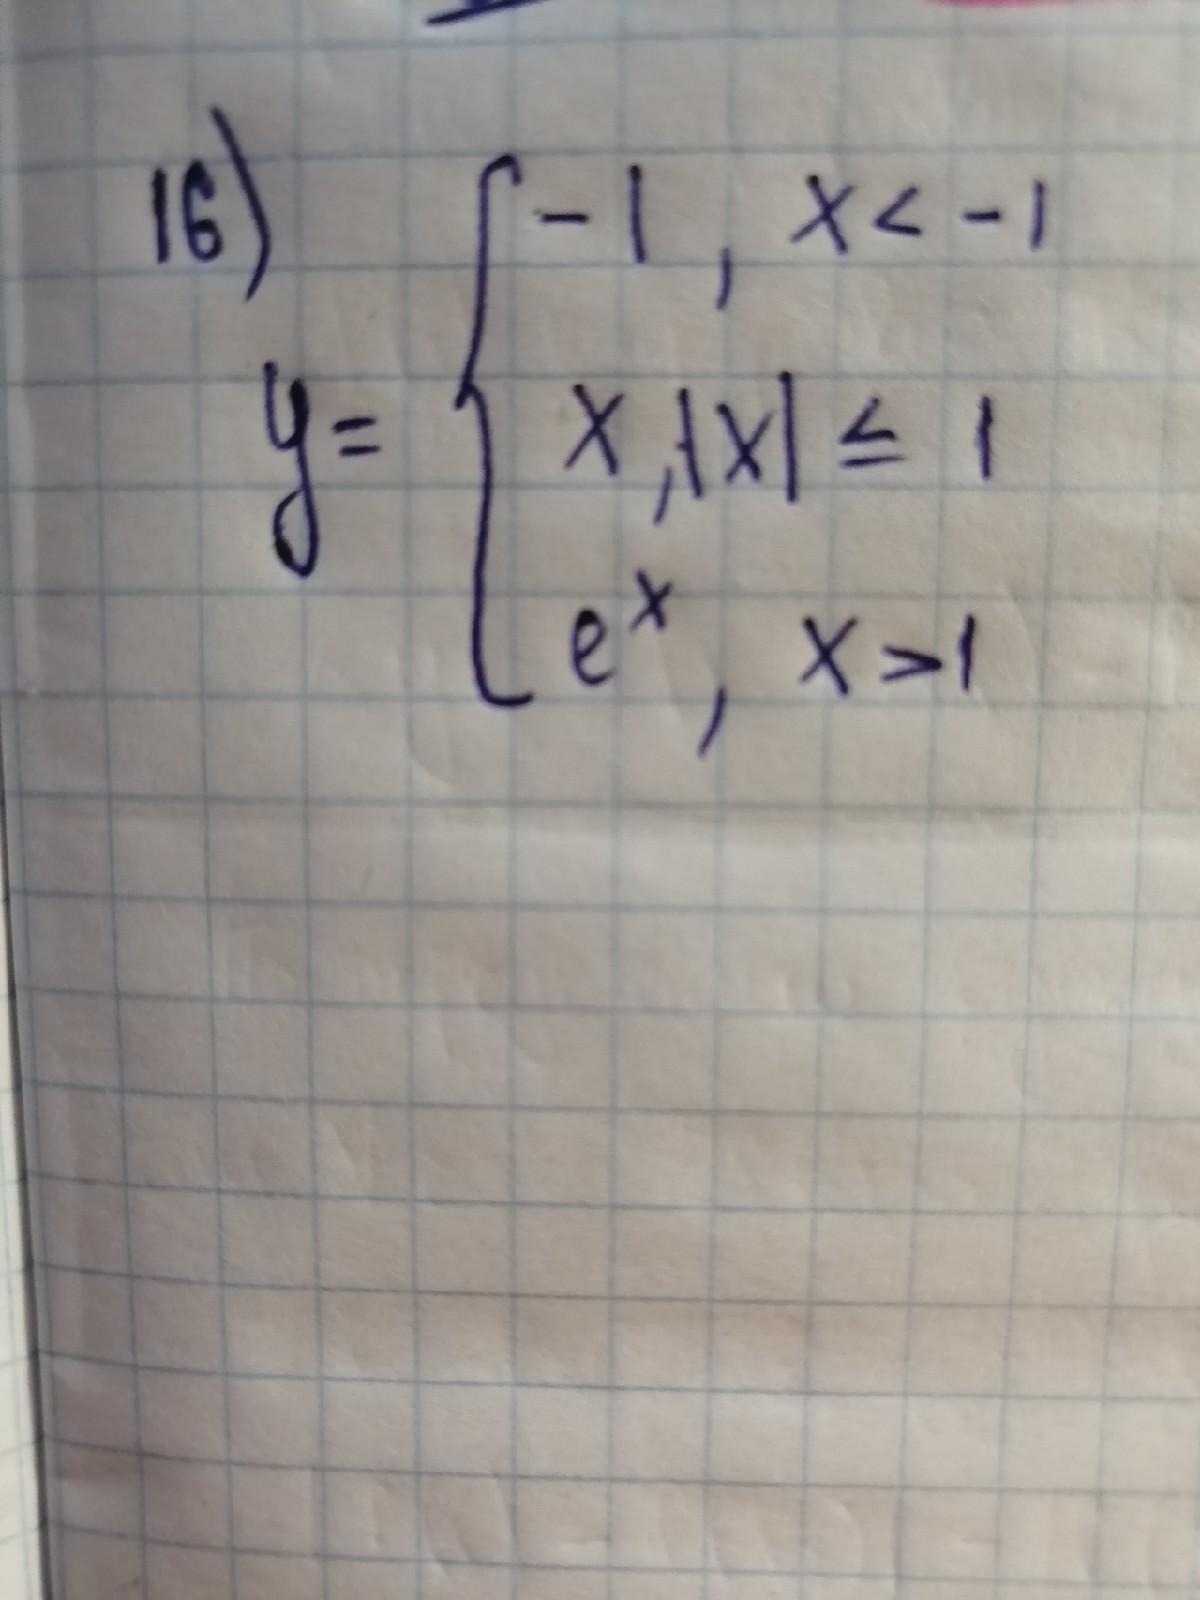 16)
-1, x < -1
y = { x, |x| ≤ 1
e^x, x > 1